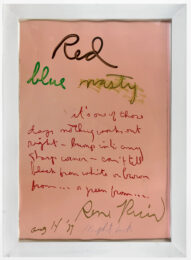 Red
blue nasty
it's one of those
days nothing works out
right - bump into any
sharp corner - can't tell
black from white or brown
from.... a green from....
Aug 14